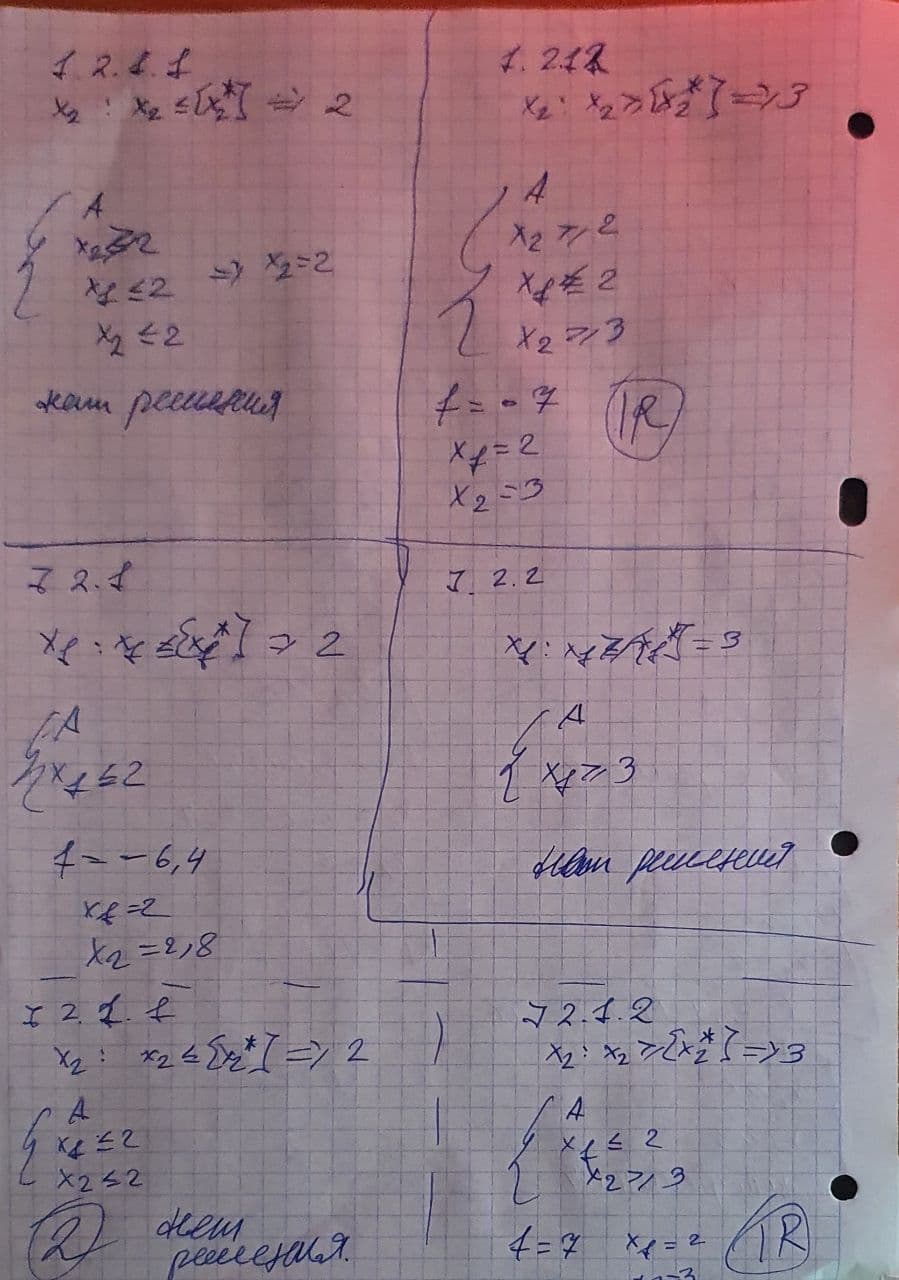 1.2.1.1
x₂ : x₂ ≤ [x₂*] => 2
{ A
x₂ ≥ 2
x₁ ≤ 2 => x₂ = 2
x₂ ≤ 2
нет решения
1.2.1.2
x₂ : x₂ ≥ [x₂*] => 3
{ A
x₂ ≥ 2
x₁ ≤ 2
x₂ ≥ 3
f = - 7
IR
x₁ = 2
x₂ = 3
I 2.1
x₁ : x₁ ≤ [x₁*] => 2
{ A
x₁ ≤ 2
f = - 6,4
x₁ = 2
x₂ = 2,8
I. 2.2
x₁ : x₁ ≥ [x₁*] = 3
{ A
x₁ ≥ 3
нет решения
I 2.1.1
x₂ : x₂ ≤ [x₂*] => 2
{ A
x₁ ≤ 2
x₂ ≤ 2
2 нет
решения.
I 2.1.2
x₂ : x₂ ≥ [x₂*] => 3
{ A
x₁ ≤ 2
x₂ ≥ 3
f = 7 x₁ = 2 IR
x₂ = 3